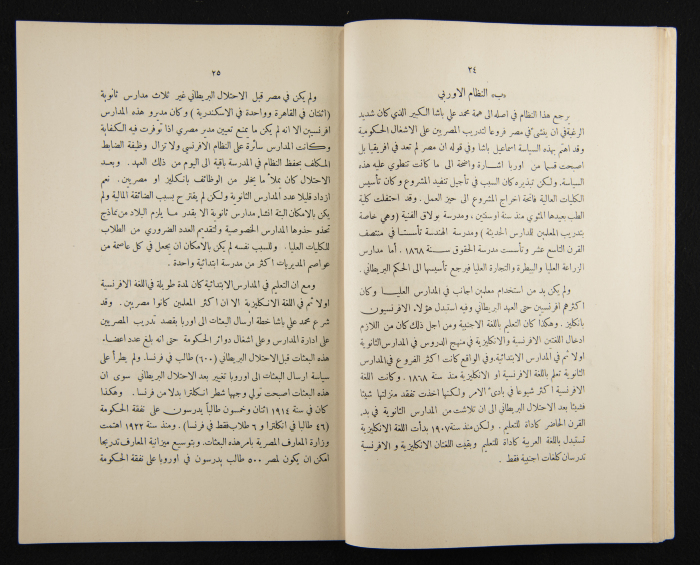 ٢٤
«ب» النظام الاوربي
يرجع هذا النظام في اصله الى همة محمد علي باشا الكبير الذي كان شديد
الرغبة في ان ينشئ في مصر فروعا لتدريب المصريين على الاشغال الحكومية
وقد اهتم بهذه السياسة اسماعيل باشا وفي قوله ان مصر لم تعد في افريقيا بل
اصبحت قسما من اوربا اشارة واضحة الى ما كانت تنطوي عليه هذه
السياسة. ولكن تبذيره كان السبب في تأجيل تنفيذ المشروع وكان تأسيس
الكليات العالية فاتحة اخراج المشروع الى حيز العمل. وقد احتفلت كلية
الطب بعيدها المئوي منذ سنة اوسنتين، ومدرسة بولاق الفنية (وهي خاصة
بتدريب المعلمين للمدارس الحديثة) ومدرسة الهندسة تأسستا في منتصف
القرن التاسع عشر وتأسست مدرسة الحقوق سنة ١٨٦٨. أما مدارس
الزراعة العليا والبيطرة والتجارة العليا فيرجع تأسيسها الى الحكم البريطاني.
ولم يكن بد من استخدام معلمين اجانب في المدارس العليا وكان
اكثرهم افرنسيين حتى العهد البريطاني وفيه استبدل هؤلاء الافرنسيون
بانكليز. وهكذا كان التعليم باللغة الاجنبية ومن اجل ذلك كان من اللازم
ادخال اللغتين الافرنسية والانكليزية في منهج الدروس في المدارس الثانوية
اولا ثم في المدارس الابتدائية. وفي الواقع كانت اكثر الفروع في المدارس
الثانوية تعلم باللغة الافرنسية او الانكليزية منذ سنة ١٨٦٨. وكانت اللغة
الافرنسية اكثر شيوعا في بادئ الامر ولكنها اخذت تفقد منزلتها شيئا
فشيئا بعد الاحتلال البريطاني الى ان تلاشت من المدارس الثانوية في بدء
القرن الحاضر كاداة للتعليم. ولكن منذ سنة ١٩٠٧ بدأت اللغة الانكليزية
تستبدل باللغة العربية كاداة للتعليم وبقيت اللغتان الانكليزية و الافرنسية
تدرسان كلغات اجنبية فقط.
٢٥
ولم يكن في مصر قبل الاحتلال البريطاني غير ثلاث مدارس ثانوية
(اثنتان في القاهرة وواحدة في الاسكندرية) وكان مديرو هذه المدارس
افرنسيين الا انه لم يكن ما يمنع تعيين مدير مصري اذا توفرت فيه الكفاية
وكانت المدارس سائرة على النظام الافرنسي ولا تزال وظيفة الضابط
المكلف بحفظ النظام في المدرسة باقية الى اليوم من ذلك العهد. وبعد
الاحتلال كان يملأ ما يخلو من الوظائف بانكليز او مصريين. نعم
ازداد قليلا عدد المدارس الثانوية ولكن لم يقترح بسبب الضائقة المالية ولم
يكن بالامكان البتة انشاء مدارس ثانوية الا بقدر ما يلزم البلاد من نماذج
تحذو حذوها المدارس الخصوصية ولتقديم العدد الضروري من الطلاب
للكليات العليا. وللسبب نفسه لم يكن بالامكان ان يجعل في كل عاصمة من
عواصم المديريات اكثر من مدرسة ابتدائية واحدة.
ومع ان التعليم في المدارس الابتدائية كان لمدة طويلة في اللغة الافرنسية
اولا ثم في اللغة الانكليزية الا ان اكثر المعلمين كانوا مصريين. وقد
شرع محمد علي باشا خطة ارسال البعثات الى اوربا بقصد تدريب المصريين
على ادارة المدارس وعلى اشغال دوائر الحكومة حتى انه بلغ عدد اعضاء
هذه البعثات قبل الاحتلال البريطاني (٦٠٠) طالب في فرنسا. ولم يطرأ على
سياسة ارسال البعثات الى اوروبا تغيير بعد الاحتلال البريطاني سوى ان
هذه البعثات اصبحت تولي وجهها شطر انكلترا بدلا من فرنسا. وهكذا
كان في سنة ١٩١٤ اثنان وخمسون طالباً يدرسون على نفقة الحكومة
(٤٦ طالبا في انكلترا و ٦ طلاب فقط في فرنسا). ومنذ سنة ١٩٢٢ اهتمت
وزارة المعارف المصرية بامر هذه البعثات. وبتوسيع ميزانية المعارف تدريجا
امكن ان يكون لمصر ٥٠٠ طالب يدرسون في اوروبا على نفقة الحكومة